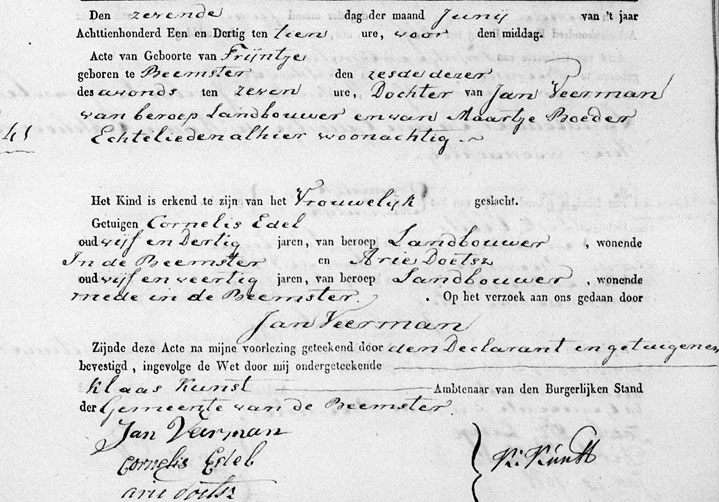 Den zevende dag der maand Junij van 't jaar
Achttienhonderd Een en Dertig ten tien ure, voor den middag.
Acte van Geboorte van Trijntje
geboren te Beemster den zesde dezer
des avonds ten zeven ure, Dochter van Jan Veerman
van beroep Landbouwer en van Maartje Roeder
41
Echtelieden alhier woonachtig.
Het Kind is erkend te zijn van het Vrouwelijk geslacht.
Getuigen Cornelis Edel
oud vijf en Dertig jaren, van beroep Landbouwer, wonende
In de Beemster en Arie Doetsz
oud vijf en veertig jaren, van beroep Landbouwer, wonende
mede in de Beemster. . Op het verzoek aan ons gedaan door
Jan Veerman
Zijnde deze Acte na mijne voorlezing geteekend door den Declarant en getuigenen
bevestigd, ingevolge de Wet door mij ondergeteekende
Klaas Kunst Ambtenaar van den Burgerlijken Stand
der Gemeente van de Beemster
Jan Veerman
Cornelis Edel
K. Kunst
arie doetsz